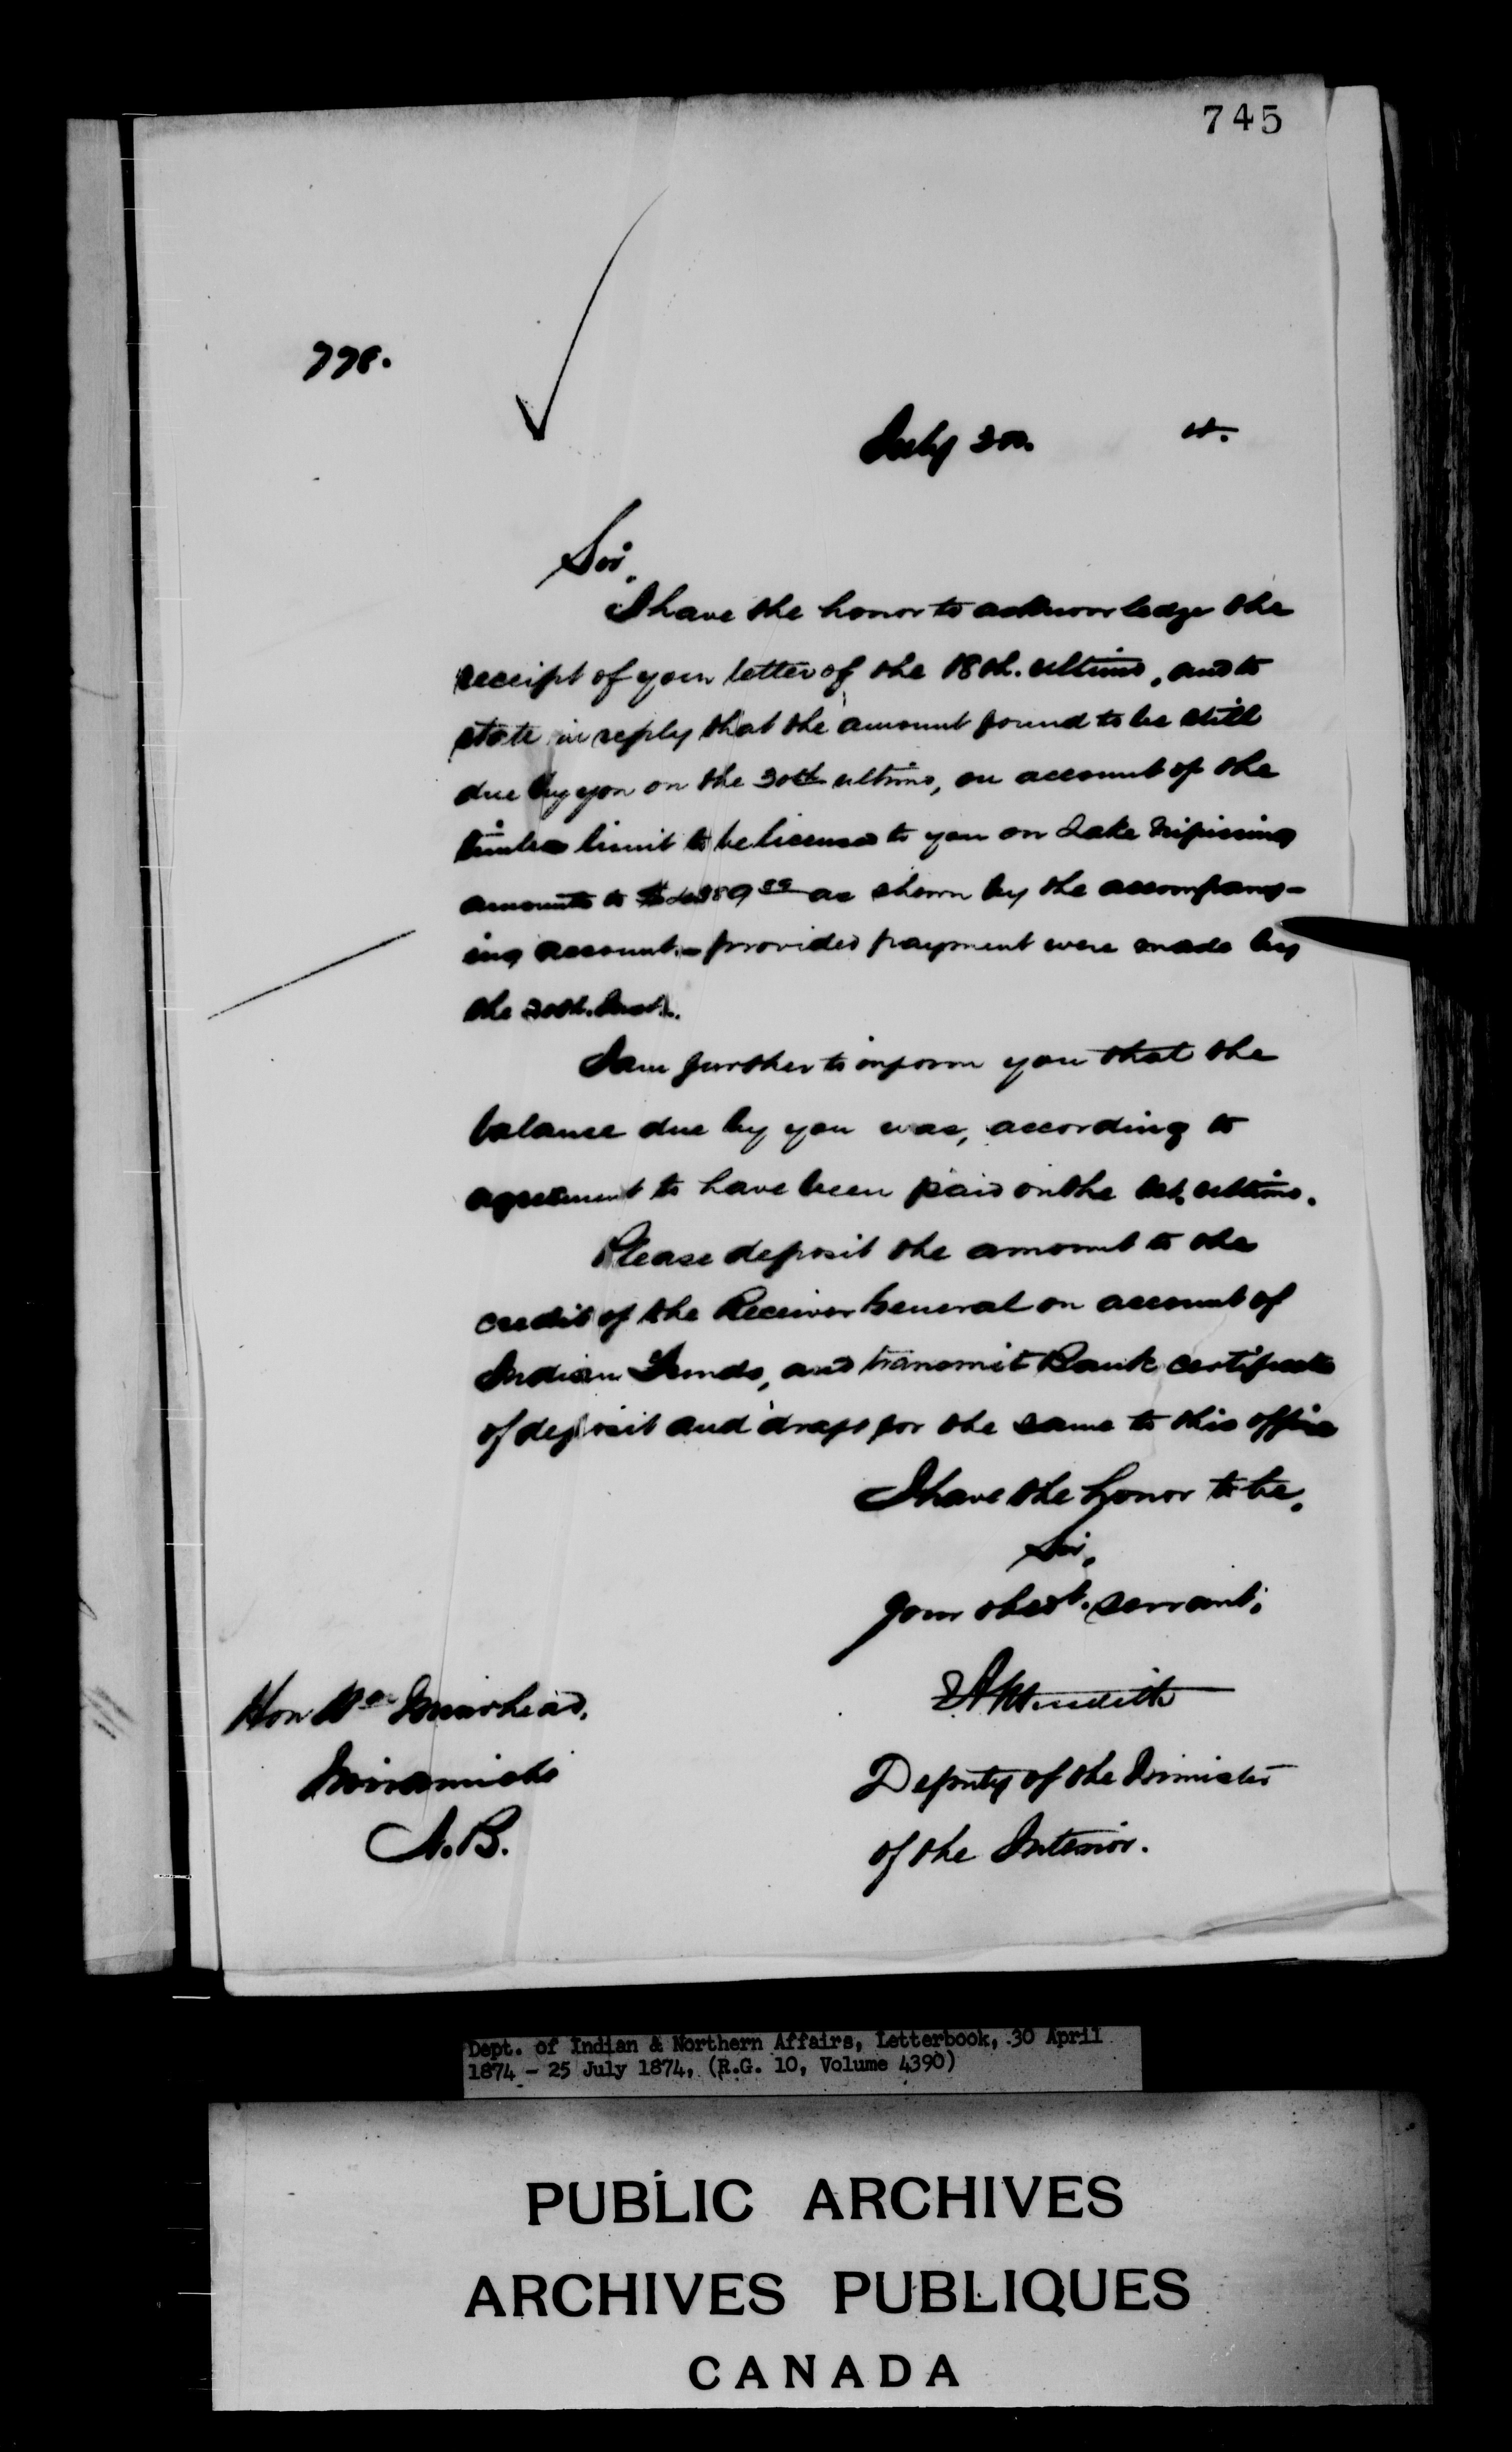 745
778.
July
Sir,
I have the honor to acknowledge the
receipt of your letter of the 18th. ultimo, and to
state in reply that the amount found to be still
due by you on the 30th ultimo, on account of the
timber limit to be licensed to you on Lake Nipissing
amounts to as shown by the accompany-
ing account.- provided payment were made by
the 20th. Inst.
I am further to inform you that the
balance due by you was, according to
agreement to have been paid on the 1st. ultimo.
Please deposit the amount to the
credit of the Receiver General on account of
Indian Funds, and transmit Bank certificate
of deposit and draft for the same to this office
I have the honor to be,
Sir,
Your obedt. servant,
EAMeredith
Deputy of the Minister
of the Interior.
Hon Wm Muirhead,
Miramichi
N.B.
Dept. of Indian & Northern Affairs, Letterbook, 30 April
1874 - 25 July 1874, (R.G. 10, Volume 4390)
PUBLIC ARCHIVES
ARCHIVES PUBLIQUES
CANADA